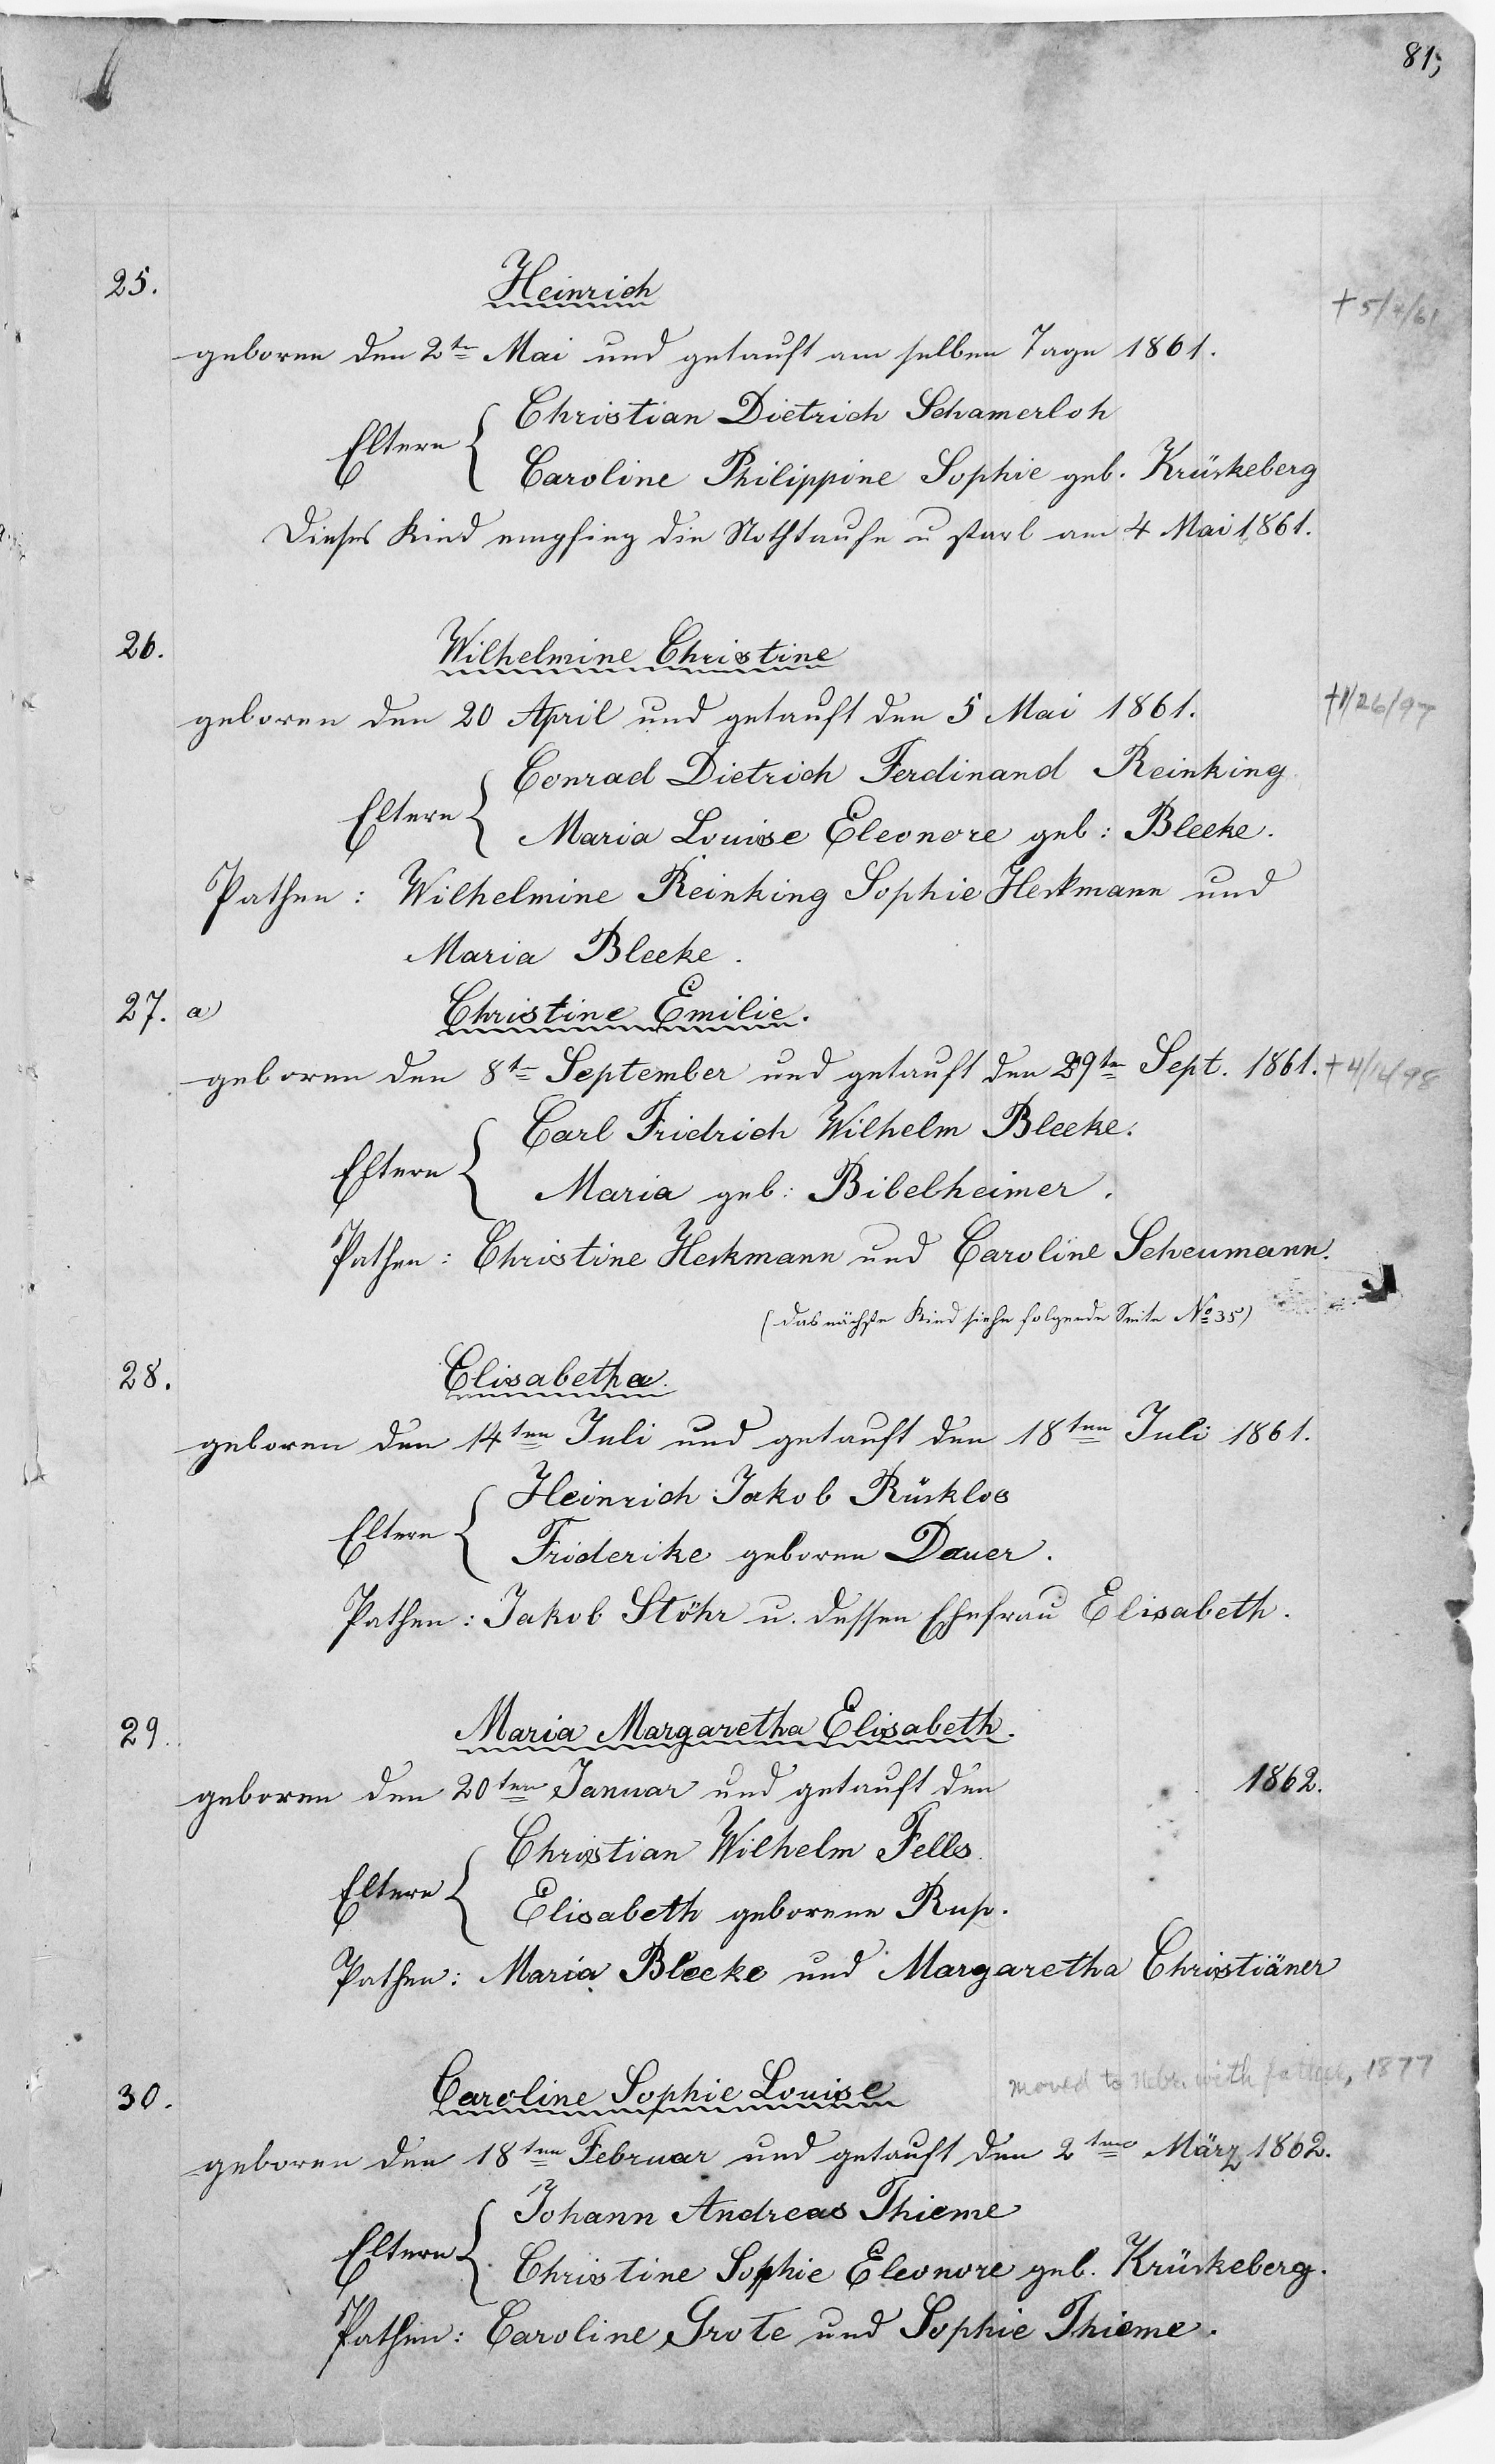 81,
25. Heinrich
+ 5/4/61
geboren den 2te Mai und getauft am selben Tage 1861.
Christian Dietrich Schamerloh
Eltern {
Caroline Philippine Sophie geb. Krückeberg
Dieses Kind empfing die Nothtaufe u starb am 4 Mai 1861.
26. Wilhelmine Christine
geboren den 20 April und getauft den 5 Mai 1861. +1/26/97
Conrad Dietrich Ferdinand Reinking
Eltern {
Maria Louise Eleonore geb: Bleeke.
Pathen: Wilhelmine Reinking Sophie Heckmann und
Maria Bleeke.
27. a) Christine Emilie.
geboren den 8te September und getauft den 29ten Sept. 1861. +
Carl Fridrich Wilhelm Bleeke.
Eltern {
Maria geb: Bibelheimer.
Pathen: Christine Heckmann und Caroline Scheumann.
(das nächste Kind siehe folgende Seite No 35)
28. Elisabetha.
geboren den 14ten Juli und getauft den 18ten Juli 1861.
Heinrich Jakob Rücklos
Eltern {
Friderike geboren Dauer.
Pathen: Jakob Stöhr u. dessen Ehefrau Elisabeth.
29. Maria Margaretha Elisabeth.
geboren den 20ten Januar und getauft den 1862.
Christian Wilhelm Fells.
Eltern {
Elisabeth geborene Rup.
Pathen: Maria Bleeke und Margaretha Christiäner
moved to Nebr. with father, 1877
30. Caroline Sophie Louise
geboren den 18ten Februar und getauft den 2ten März 1862.
Johann Andreas Thieme
Eltern {
Christine Sophie Eleonore geb. Krückeberg.
Pathen: Caroline Grote und Sophie Thieme.